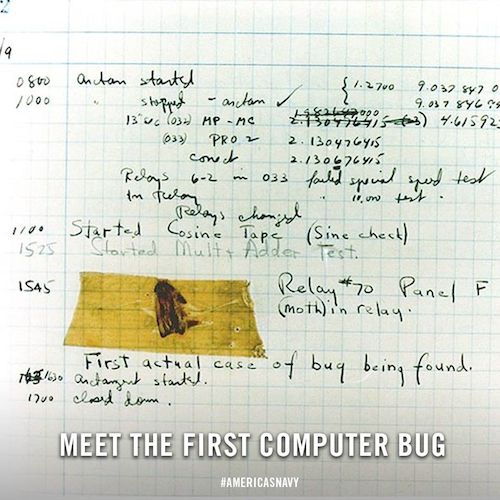 2
/9
0800 antan started { 1.2700 9.037 847 0
1000 " stopped - antan ✓ 9.037 846 9
13" uc (032) MP - MC 2.130476415 (-3) 4.61592
(033) PRO 2 2.130476415
conect 2.130676415
Relays 6-2 in 033 failed special speed test
In Relay " 10,000 test .
Relays changed
1100 Started Cosine Tape (Sine check)
1525 Started Mult + Adder Test.
1545 Relay #70 Panel F
(moth) in relay.
First actual case of bug being found.
1630 antangent started.
1700 closed down .
MEET THE FIRST COMPUTER BUG
#AMERICASNAVY